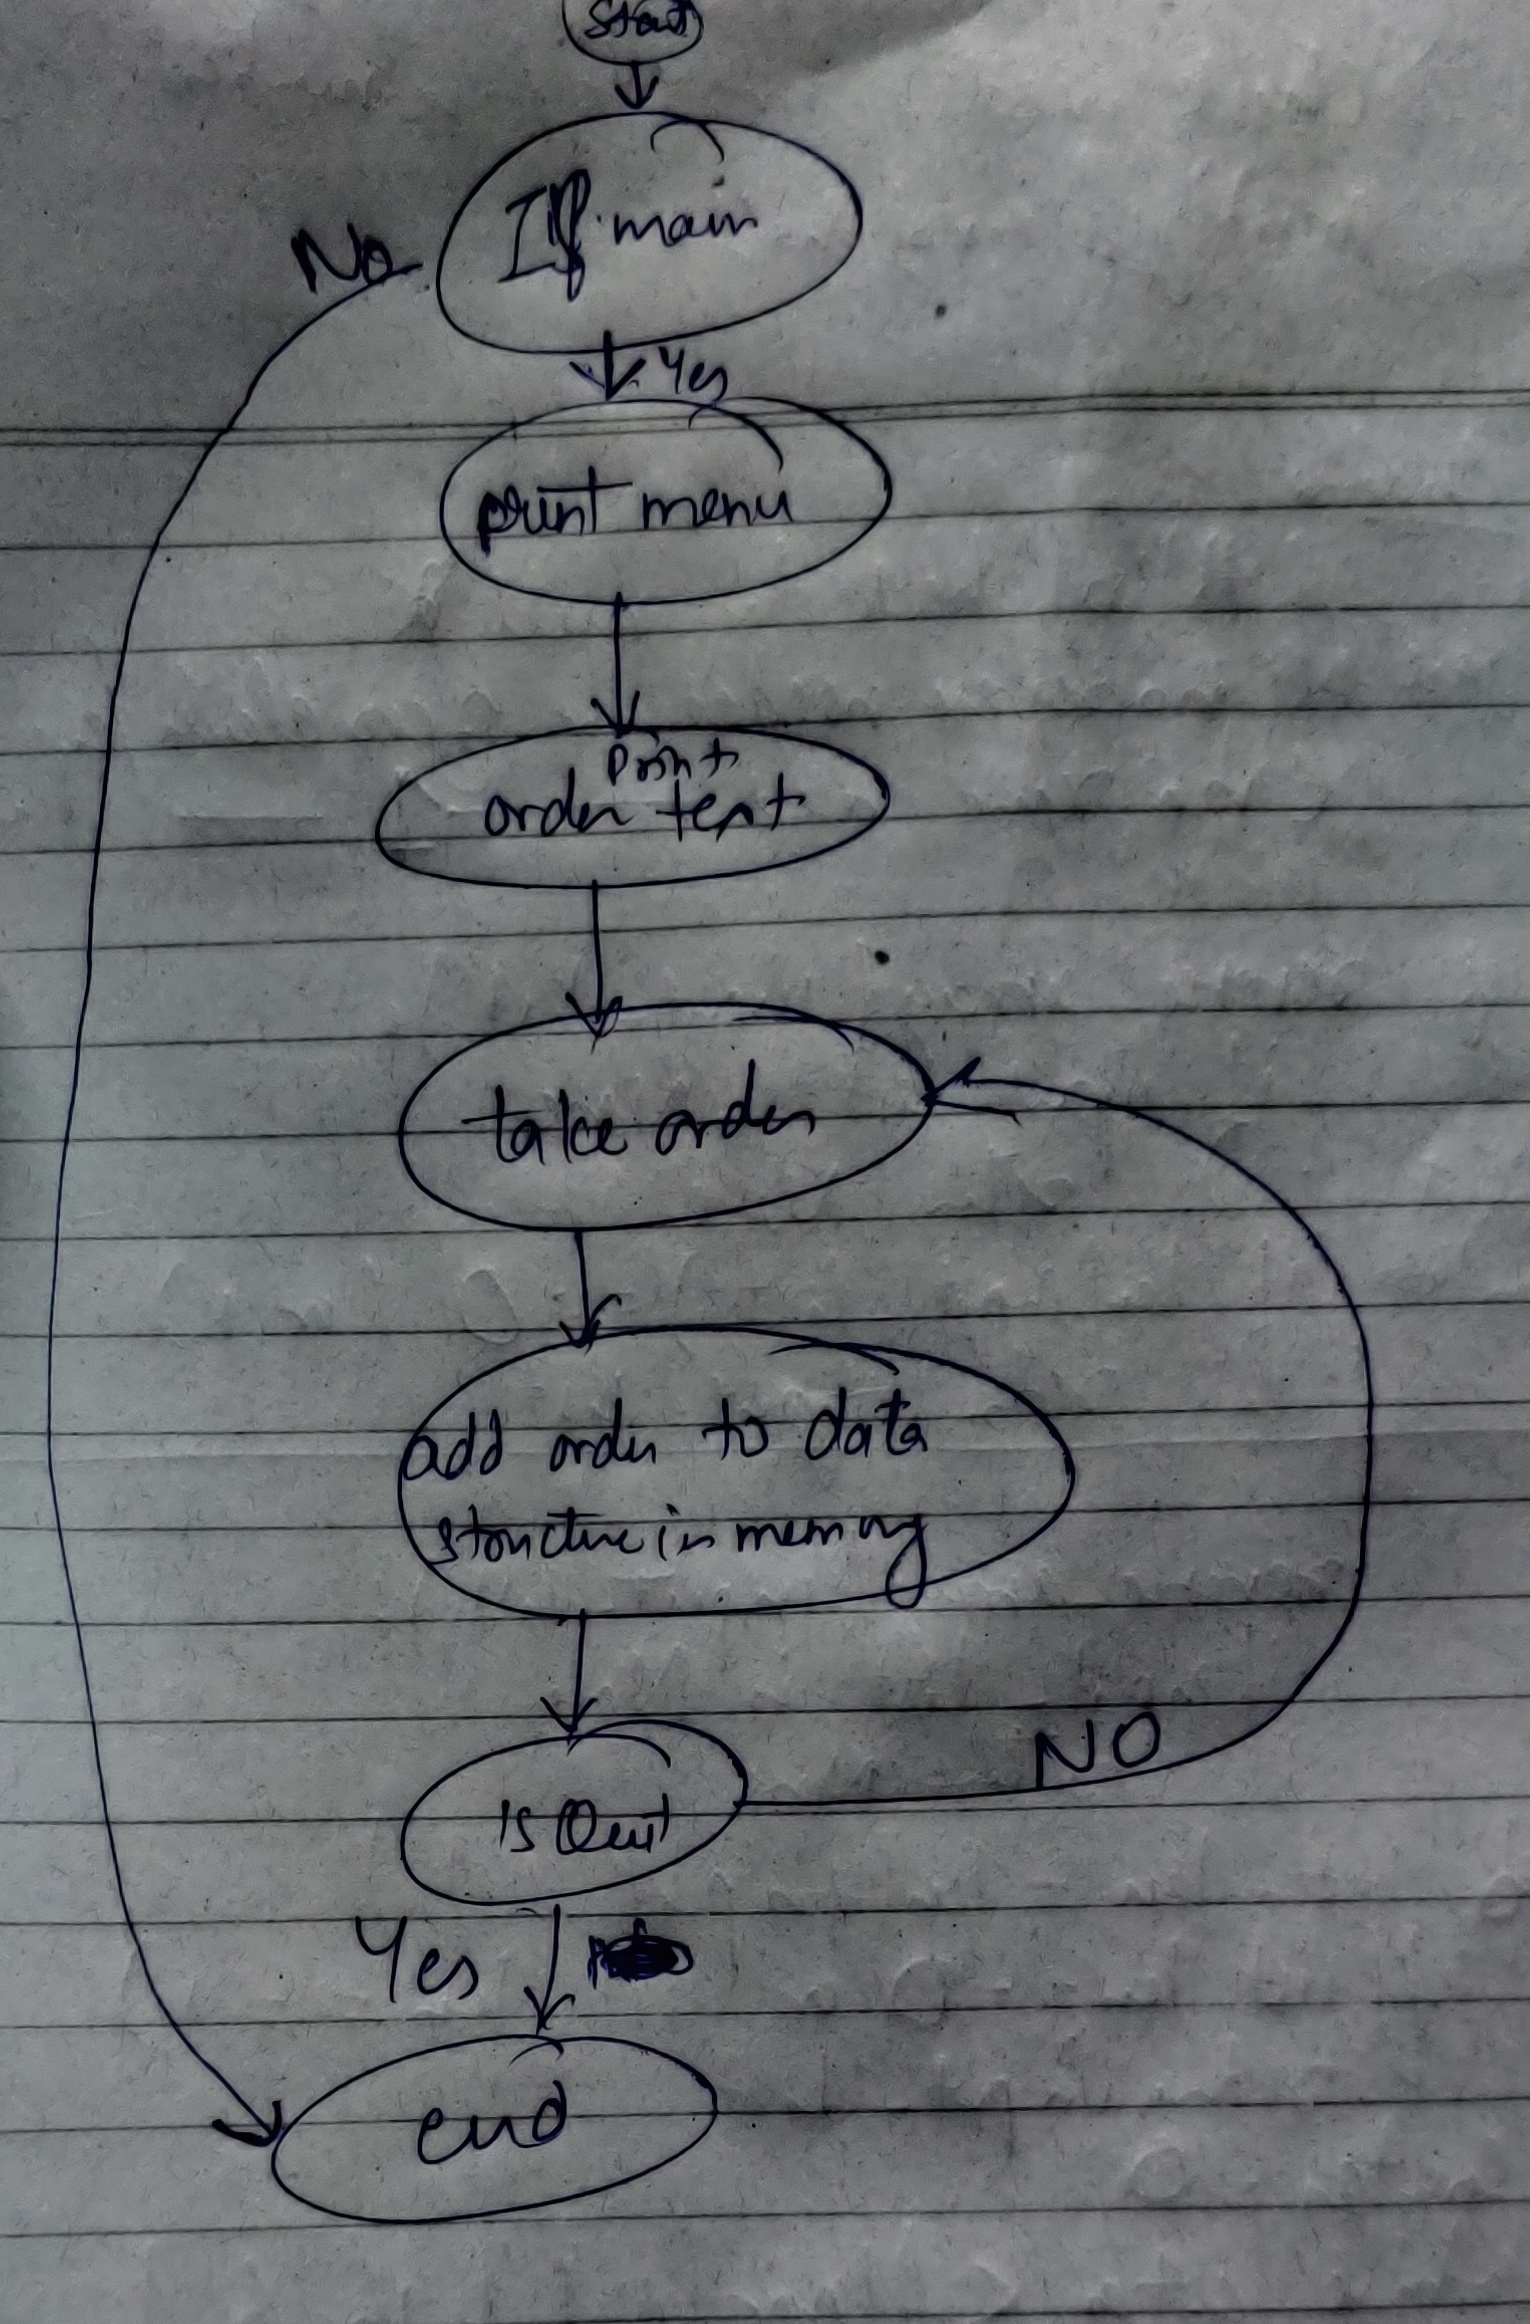 Start
If main
No
Yes
print menu
Print
order text
take order
add order to data
structure in memory
NO
is Quit
Yes
end